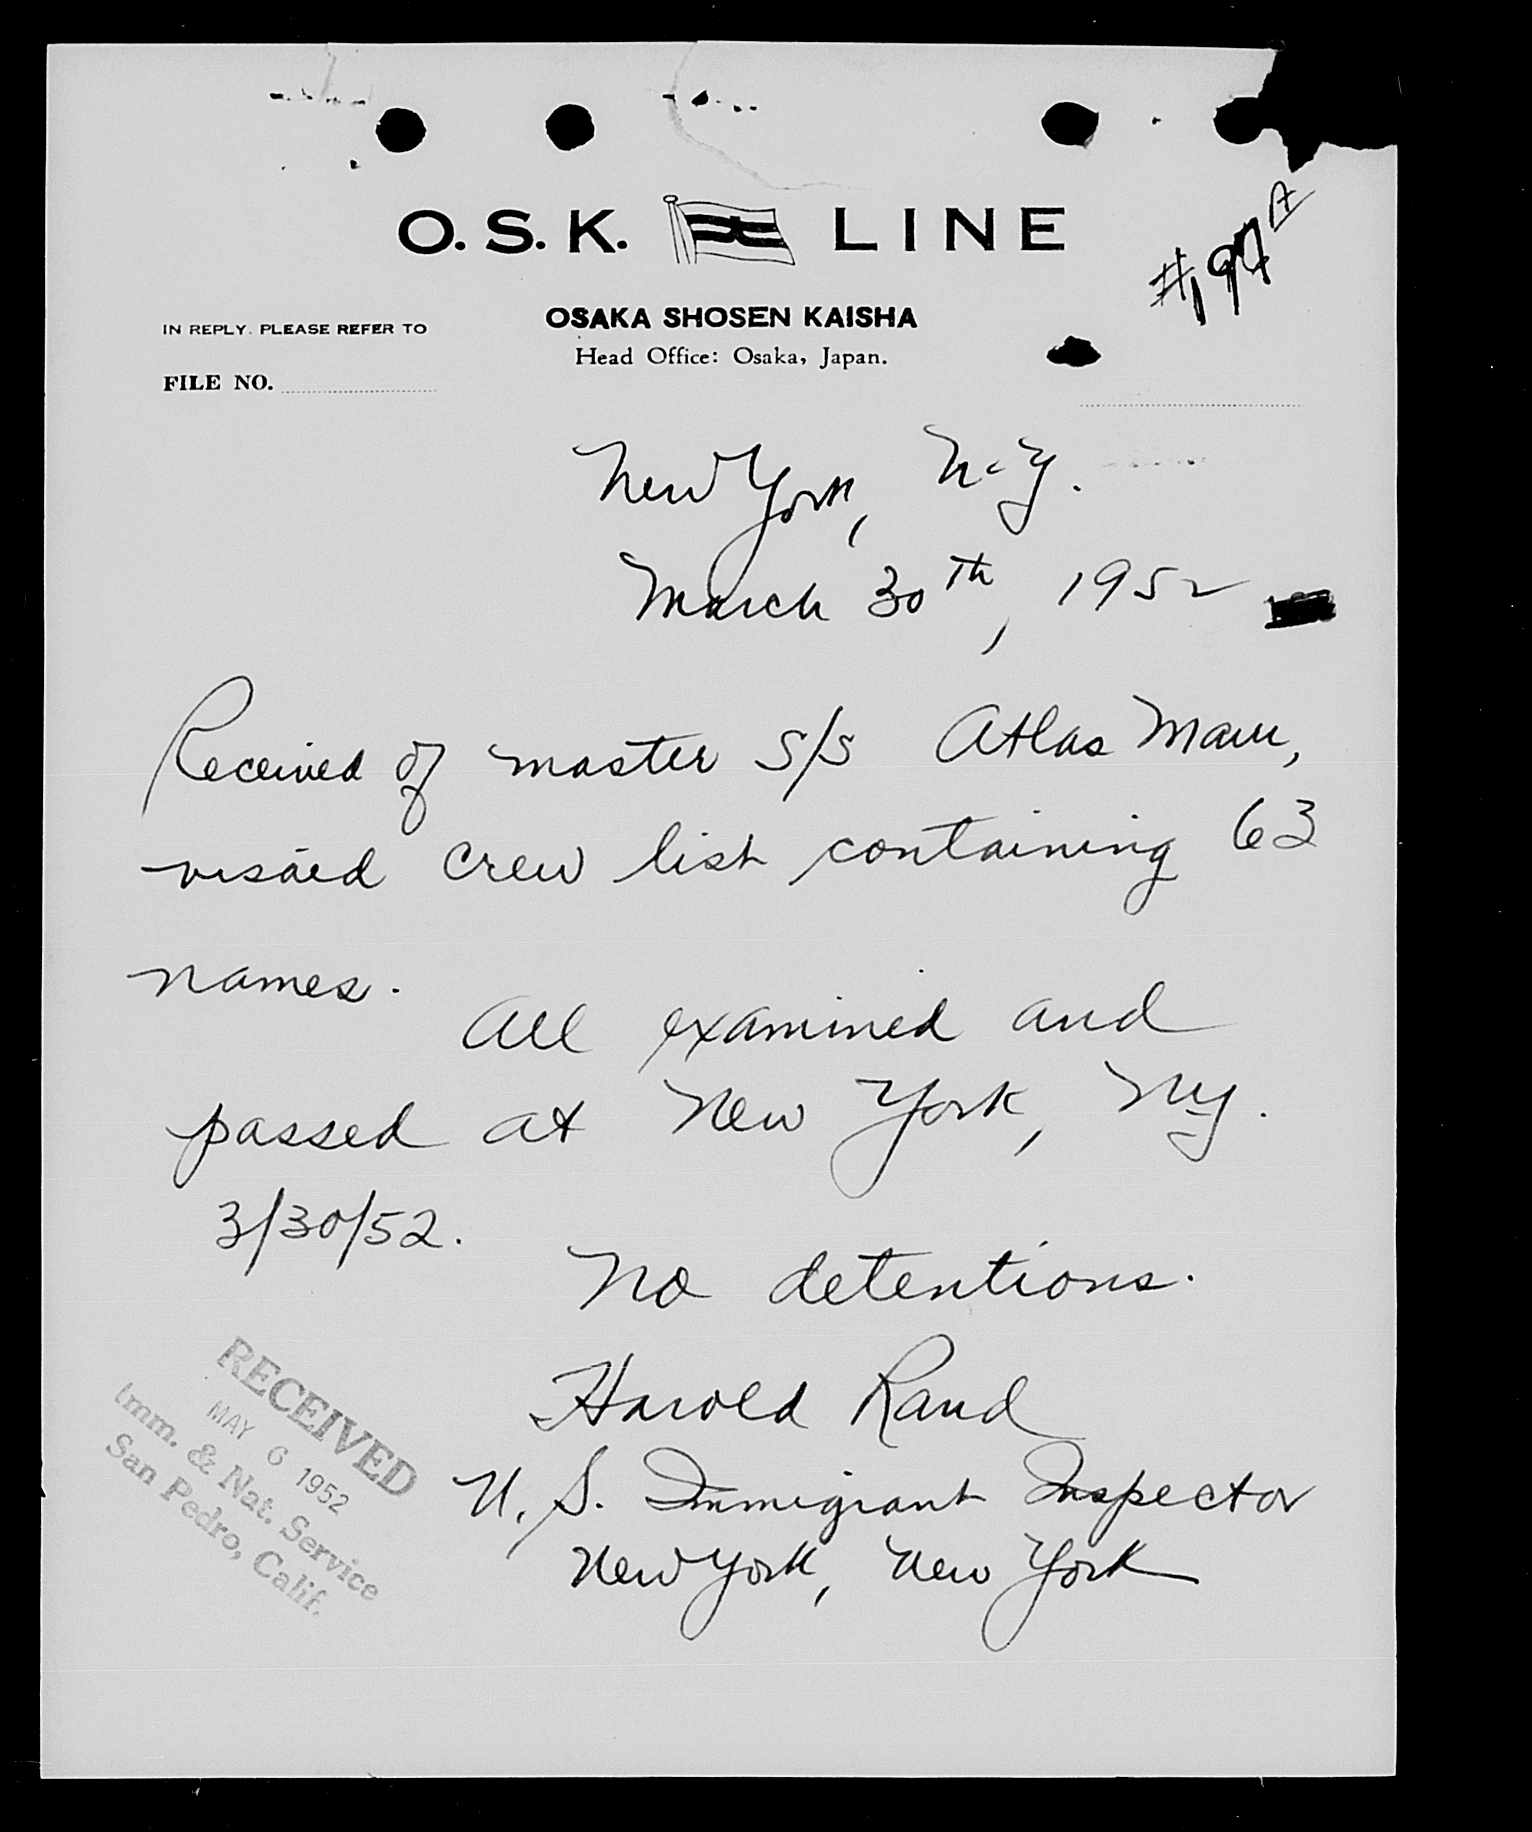 O. S. K. LINE
#197A
OSAKA SHOSEN KAISHA
IN REPLY. PLEASE REFER TO
Head Office: Osaka, Japan.
FILE NO.
New York, N.Y.
March 30th, 1952
Received of master S/S Atlas Maru,
visáed crew list containing 63
names.
All examined and
passed at New York, NY.
3/30/52.
No detentions.
Harold Rand
U. S. Immigrant Inspector
New York, New York
RECEIVED
MAY 6 1952
Imm. & Nat. Service
San Pedro, Calif.